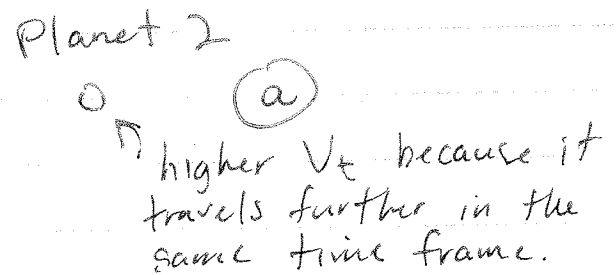 Planet 2
a
higher Vt because it
travels further in the
same time frame.